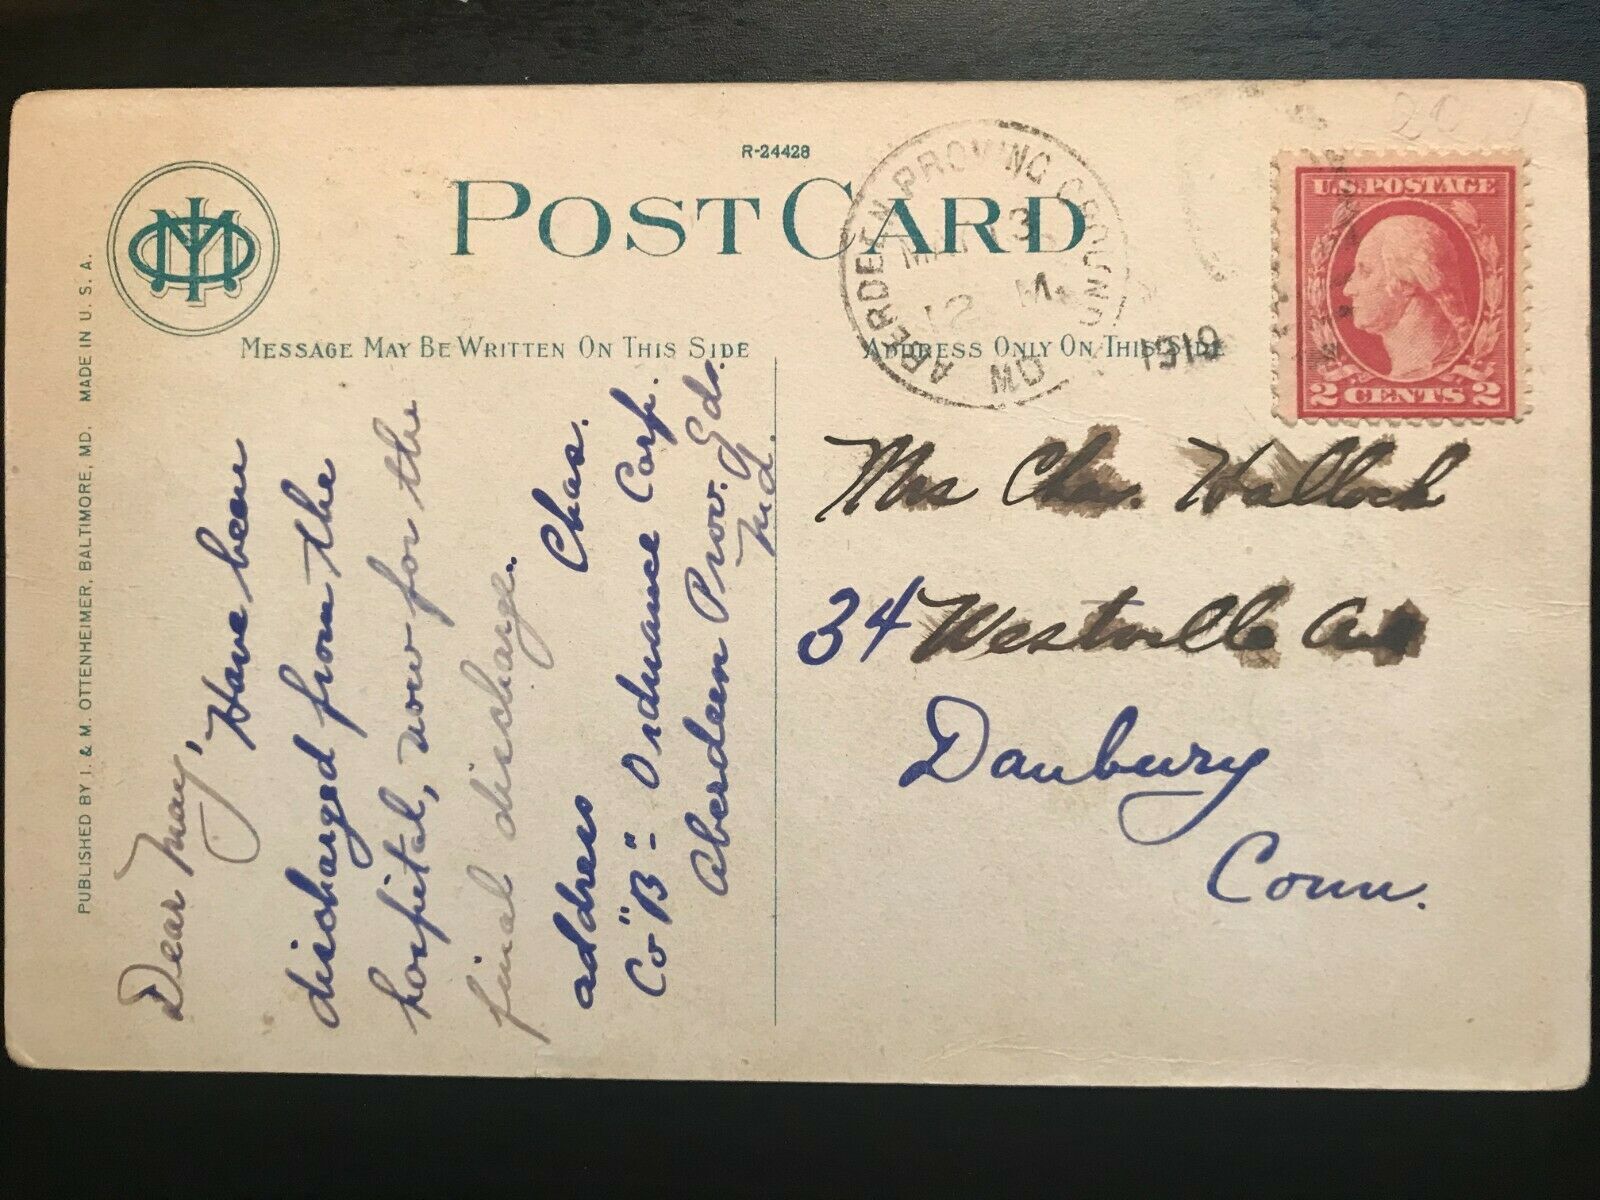 R-24428
POST CARD
MESSAGE MAY BE WRITTEN ON THIS SIDE
ADDRESS ONLY ON THIS SIDE
PUBLISHED BY I. & M. OTTENHEIMER, BALTIMORE, MD. MADE IN U. S. A.
ABERDEEN PROVING GROUND MD
13
12 M.
U.S. POSTAGE
2 CENTS 2
Dear May, Have been
discharged from the
hospital, now for the
final discharge.
Chas.
address
Co "B" - Ordnance Corp.
Aberdeen Prov. Gds.
Md.
Mrs Chas. Hallock
34 Westville Ave
Danbury
Conn.